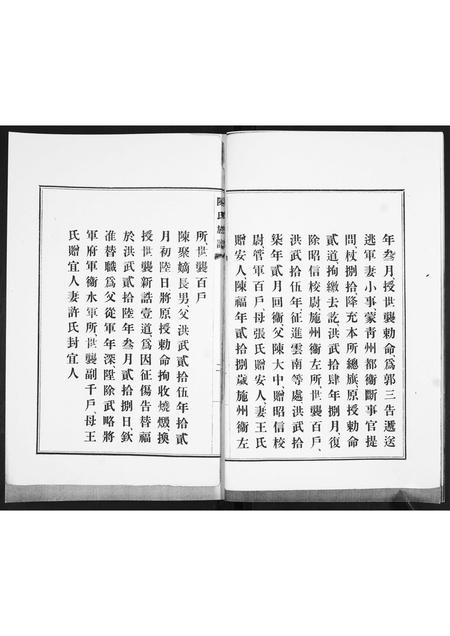 年叁月授世襲勅命、爲郭三告遞送
逃軍妻小事蒙靑州都衞斷事官提
問、杖捌拾、降充本所總旗、原授勅命
貳道拘繳去訖、洪武拾肆年捌月、復
除昭信校尉施州衞左所、世襲百戶、
洪武拾伍年、征進雲南等處、洪武拾
柒年貳月回衞、父陳大中、贈昭信校
尉管軍百戶、母張氏贈安人、妻王氏
贈安人、陳福年貳拾捌歲、施州衞左
陳氏
所世襲百戶
陳聚嫡長男、父洪武貳拾伍年拾貳
月初陸日將原授勅命拘收燒燬、換
授世襲新誥壹道、爲因征傷告替、福
於洪武貳拾陸年叁月貳拾捌日、欽
准替職、爲父從軍年深、陞除武略將
軍府軍衞水軍所、世襲副千戶、母王
氏贈宜人、妻許氏封宜人